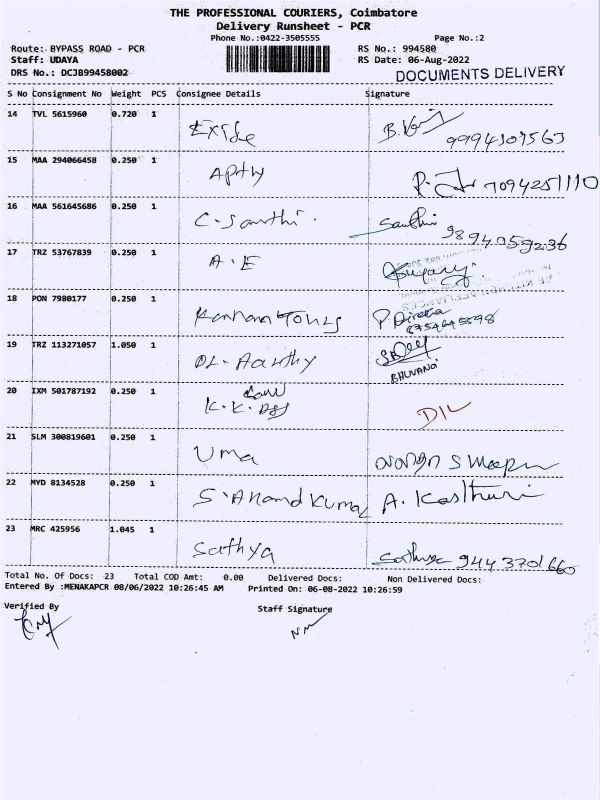 THE PROFESSIONAL COURIERS, Coimbatore
Delivery Runsheet - PCR
Phone No.:0422-3505555
Page No.:2
Route: BYPASS ROAD - PCR
RS No.: 994580
Staff: UDAYA
RS Date: 06-Aug-2022
DRS No.: DCJB99458002
DOCUMENTS DELIVERY
S No Consignment No Weight PCS Consignee Details Signature
14 TVL 5615960 0.720 1 Exide 9994309563
15 MAA 294066458 0.250 1 7094251110
16 MAA 561645686 0.250 1 C. Santhi. Santhi 9894059236
17 TRZ 53767839 0.250 1 A.E
18 PON 7980177 0.250 1 Kannan Tours
19 TRZ 113271057 1.050 1 DL. Aarthy BHUVANA
20 IXM 501787192 0.250 1 K.K.
21 SLM 300819601 0.250 1 Uma
22 MYD 8134528 0.250 1 S. Anand Kumar A. Kasthuri
23 MRC 425956 1.045 1 Sathya Sathya 9443701660
Total No. Of Docs: 23 Total COD Amt: 0.00 Delivered Docs: Non Delivered Docs:
Entered By :MENAKAPCR 08/06/2022 10:26:45 AM Printed On: 06-08-2022 10:26:59
Verified By
Staff Signature